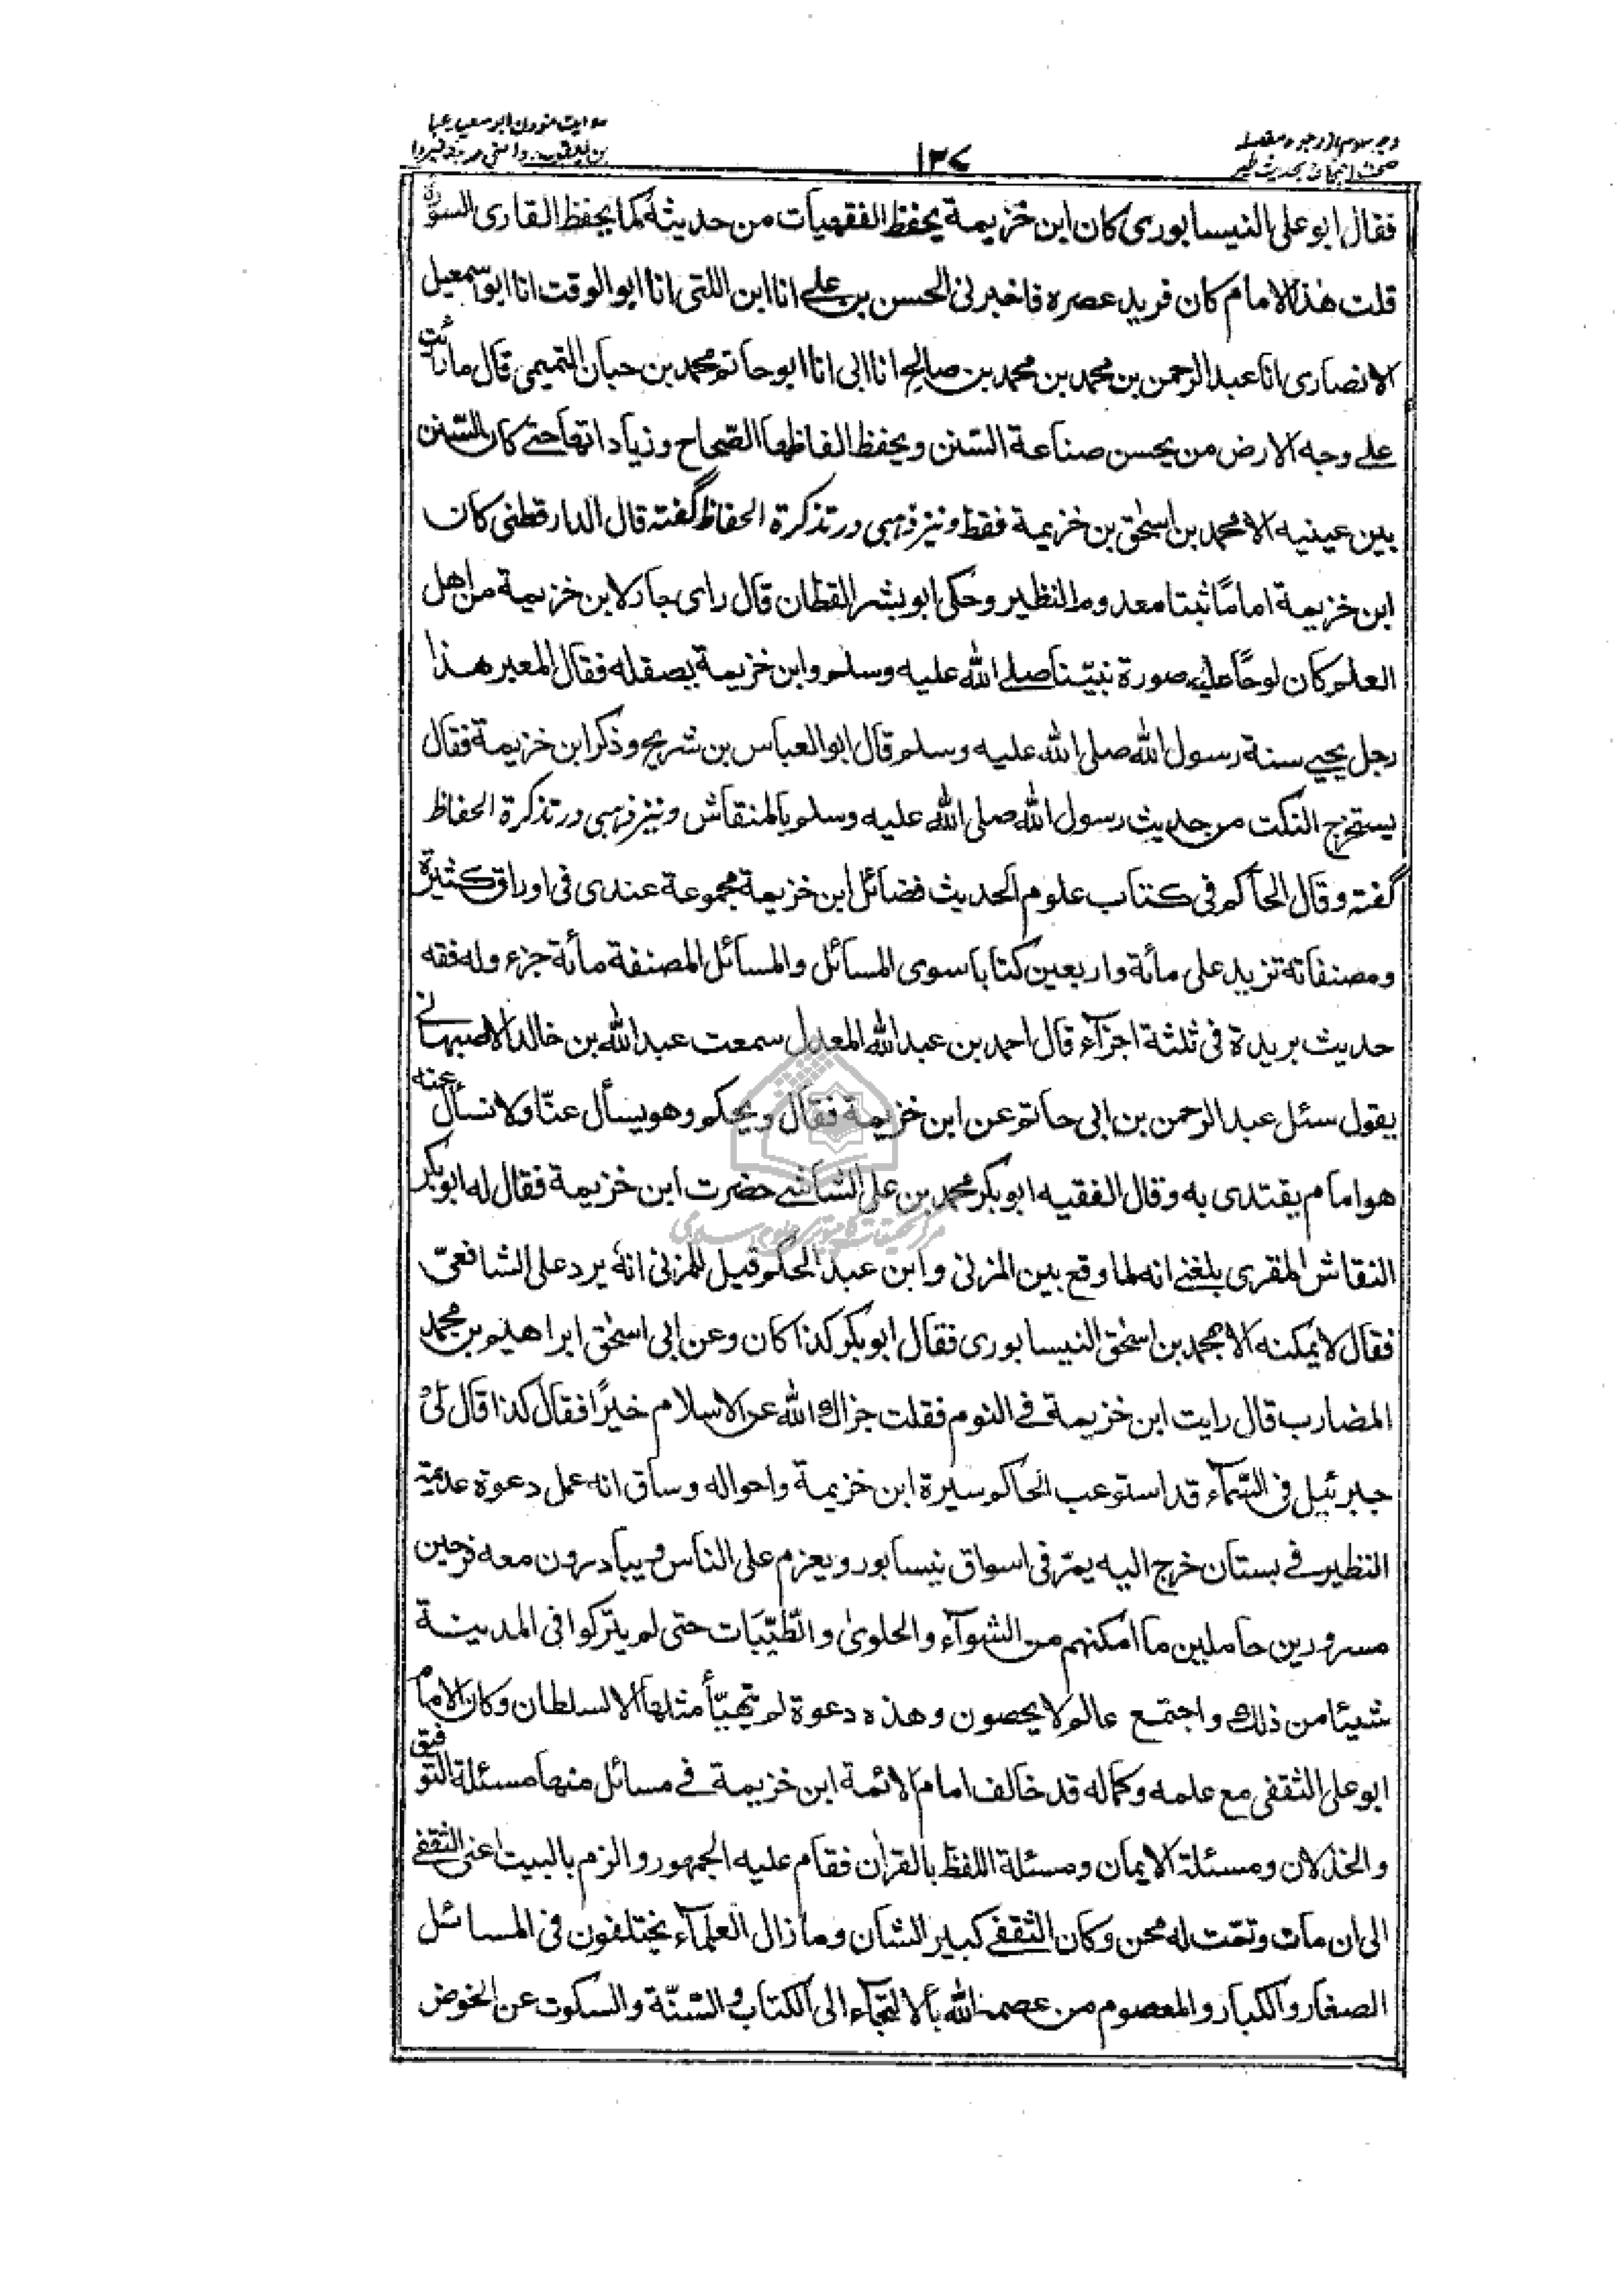 ۱۳۷
فقال ابو على النيسابورى كان ابن خزيمة يحفظ الفقهيات من حديثه كما يحفظ القارى السورة
قلت هذا الامام كان فريد عصره فاخبرنى الحسن بن على انا ابن اللتى انا ابو الوقت انا ابو اسمعيل
الانصارى انا عبد الرحمن بن محمد بن محمد بن صالح انا ابى انا ابو حاتم محمد بن حبان التميمى قال ما رأيت
على وجه الارض من يحسن صناعة السّنن ويحفظ الفاظها الصحاح وزياداتها حتى كان السّنن
بين عينيه الا محمد بن اسحٰق بن خزيمة فقط ونيز ذهبى در تذكرة الحفاظ گفته قال الدارقطنى كان
ابن خزيمة امامًا ثبتا معدوم النظير وحكى ابو بشر القطان قال راى جار لابن خزيمة من اهل
العلم كان لوحًا عليه صورة نبيّنا صلى الله عليه وسلم وابن خزيمة يصقله فقال المعبر هذا
رجل يحيى سنة رسول الله صلى الله عليه وسلم قال ابو العباس بن شريح وذكر ابن خزيمة فقال
يستخرج النكت من حديث رسول الله صلى الله عليه وسلم بالمنقاش ونيز ذهبى در تذكرة الحفاظ
گفته وقال الحاكم فى كتاب علوم الحديث فضائل ابن خزيمة مجموعة عندى فى اوراق كثيرة
ومصنفاته تزيد على مأئة واربعين كتابا سوى المسائل والمسائل المصنفة مأئة جزء وله فقه
حديث بريدة فى ثلثة اجزآء قال احمد بن عبد الله المعدل سمعت عبد الله بن خالد الاصبهانى
يقول سئل عبد الرحمن بن ابى حاتم عن ابن خزيمة فقال ويحكم وهو يسأل عنّا ولا نسأل عنه
هو امام يقتدى به وقال الفقيه ابو بكر محمد بن على الشاشى حضرت ابن خزيمة فقال له ابو بكر
النقاش المقرى بلغنى انه لما وقع بين المزنى وابن عبد الحكم قيل للمزنى انه يرد على الشافعىّ
فقال لا يمكنه الا بمحمد بن اسحٰق النيسابورى فقال ابو بكر كذا كان وعن ابى اسحٰق ابراهيم بن محمد
المضارب قال رايت ابن خزيمة فى النوم فقلت جزاك الله عن الاسلام خيرًا فقال كذا قال لى
جبرئيل فى السّمآء قد استوعب الحاكم سيرة ابن خزيمة واحواله وساق انه عمل دعوة عديمة
النظير فى بستان خرج اليه يمرّ فى اسواق نيسابور ويعزم على الناس ويبادرون معه فرحين
مسرورين حاملين ما امكنهم من الشوآء والحلوىٰ والطّيّبات حتى لم يتركوا فى المدينة
شيئا من ذلك واجتمع عالم لا يحصون وهذه دعوة لم يتهيّأ مثلها الا لسلطان وكان الامام
ابو على الثقفى مع علمه وكماله قد خالف امام الائمة ابن خزيمة فى مسائل منها مسئلة التوفيق
والخذلان ومسئلة الايمان ومسئلة اللفظ بالقرأن فقام عليه الجمهور والزم بالبيت اعنى الثقفى
الى ان مات وتمّت له محن وكان الثقفى كبير الشأن وما زال العلمآء يختلفون فى المسائل
الصغار والكبار والمعصوم من عصمه الله بألالتجآء الى الكتاب والسّنّة والسكوت عن الخوض